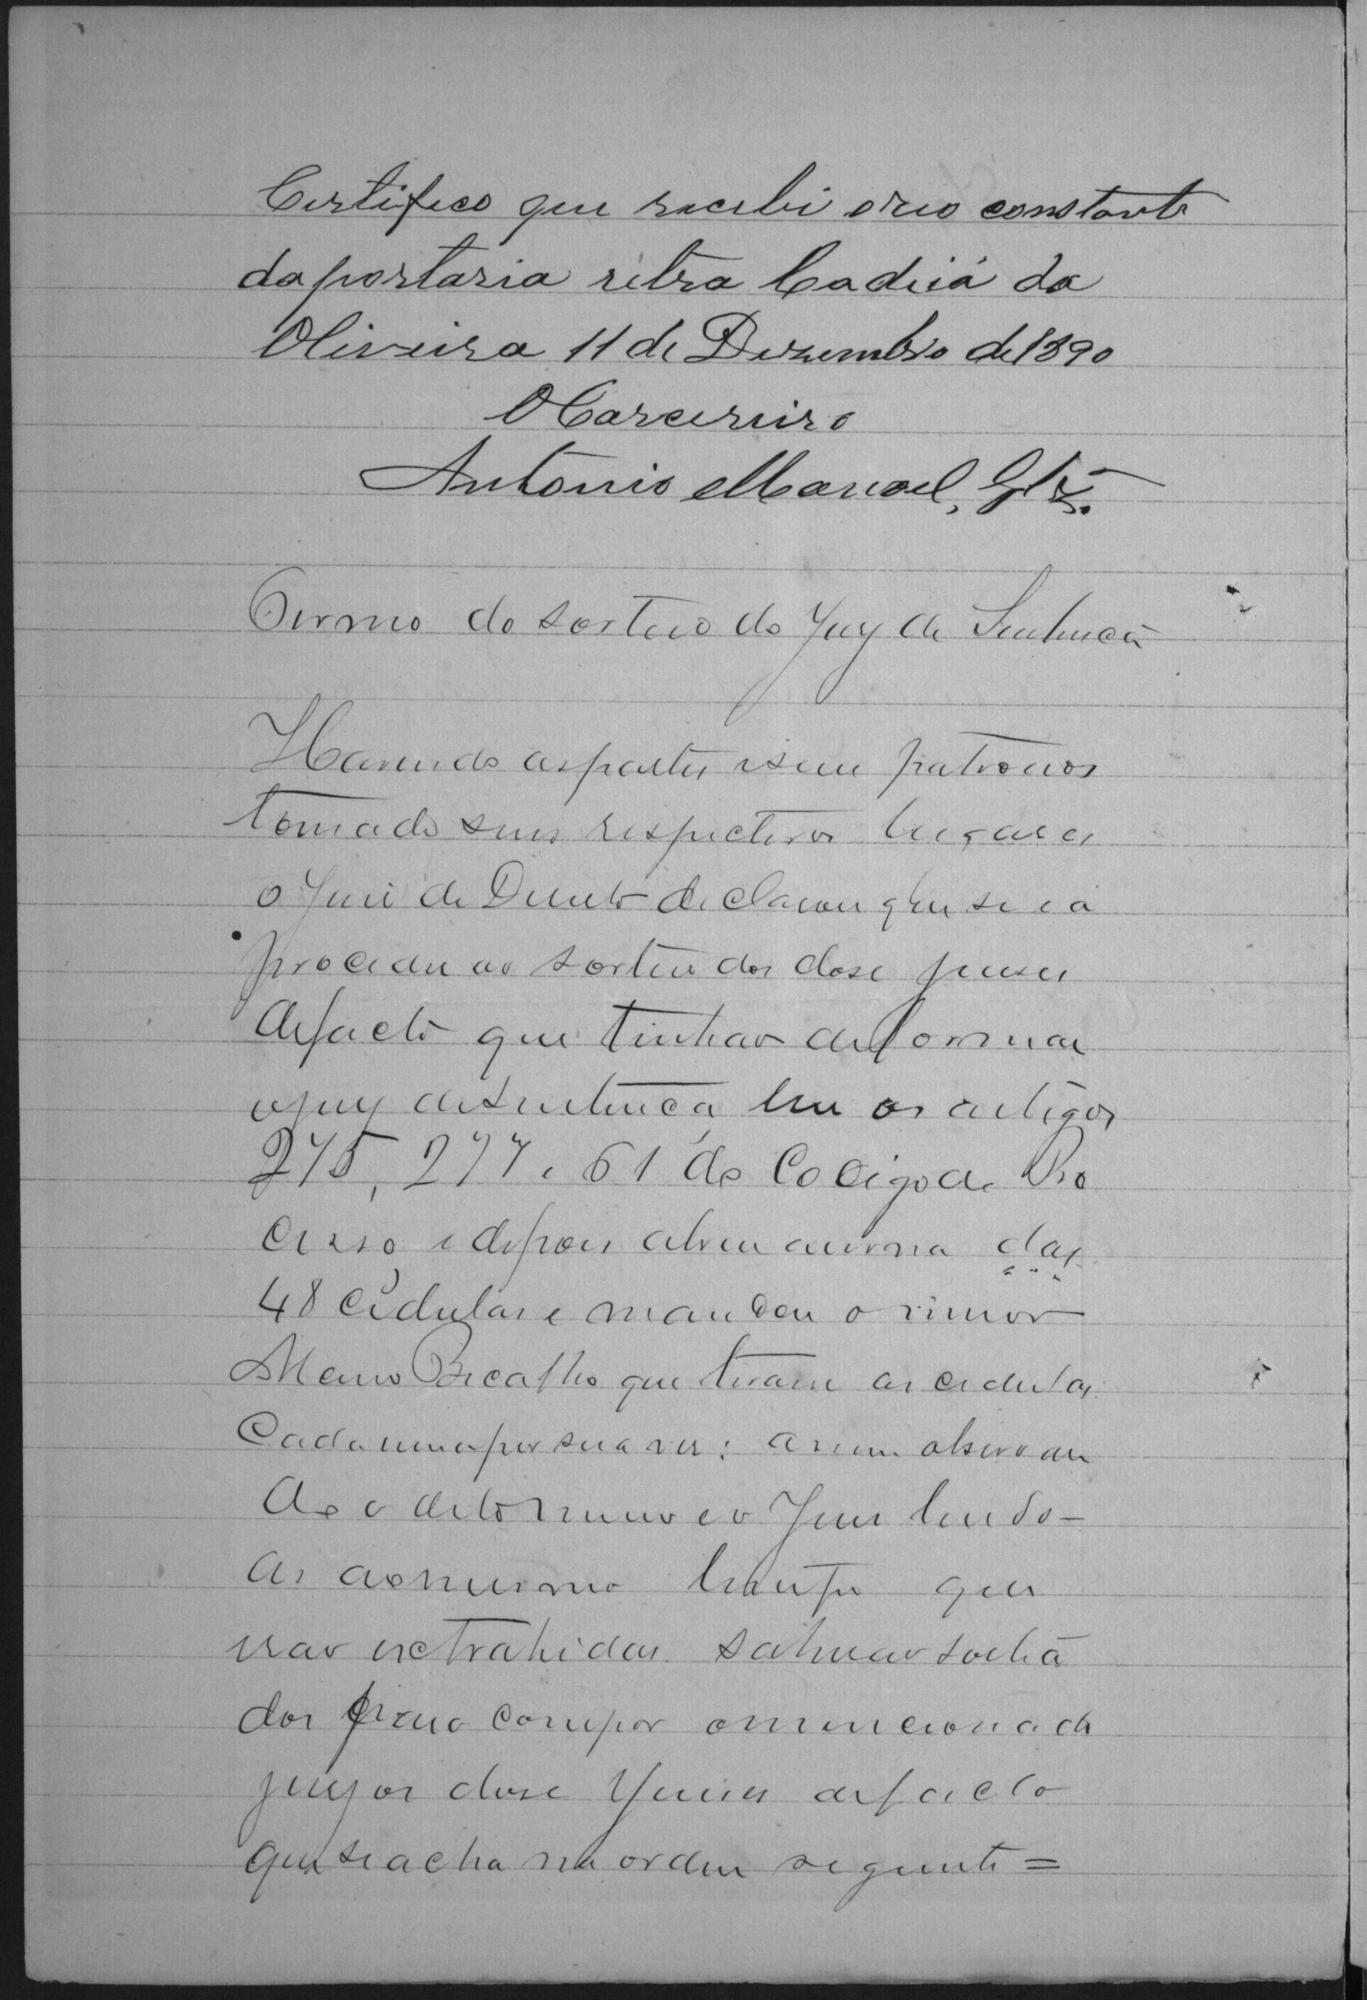 Certifico que recebi oreo constante
daportaria retra Cadeiá da
Oliveira 11 de Dezembro de 1890
O Carcereiro
Antonio Manoel,
Termo do sorteio do Jury de Sentenca
Havendo aspartes eseus patronos
tomado seus respectivos lugares
o Juis de Direito declarou que se ia
proceder ao sorteio dos dose juises
defacto que tinhao deformar
ojury desentenca, leu os artigos
275, 277, e 61 do Codigo de Pro
cesso, edepois abrio aurna das
48 cedulas e mandou o menor
que tirasse as cedulas
Cadauma por sua ves: assim observan
do o dito menor e o Juis lendo-
as aomesmo tempo que
erao extrahidas
dos para compor omencionado
juryos dose Juises defacto
que seacha na ordem seguinte =